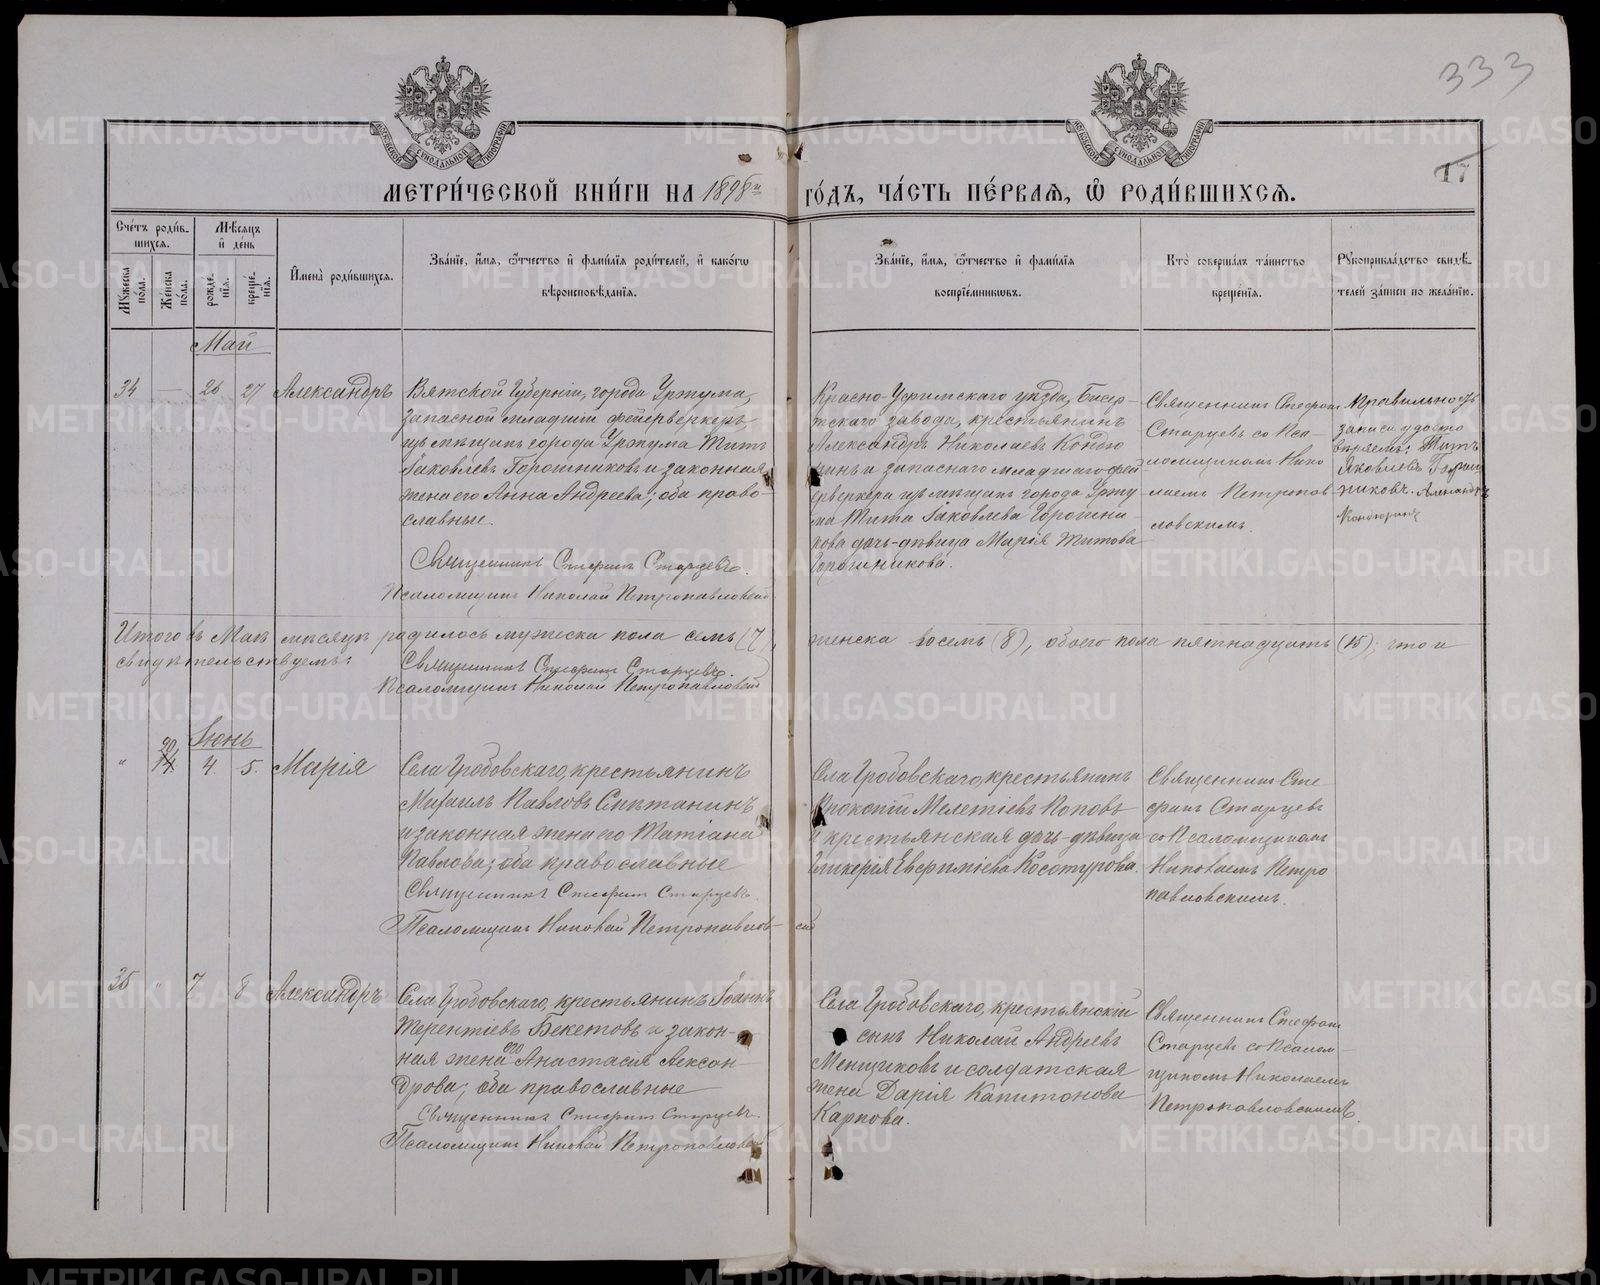 333
17
МОСКОВСКОЙ СѴНОДАЛЬНОЙ ТИПОГРАФІИ
МОСКОВСКОЙ СѴНОДАЛЬНОЙ ТИПОГРАФІИ
МЕТРИ́ЧЕСКОЙ КНИ́ГИ НА 1898й ГО́ДЪ, ЧА́СТЬ ПЕ́РВАѦ, Ѡ҆ РОДИ́ВШИХСѦ.
Сче́тъ роди́в-
шихсѧ.
Мꙋ́жеска по́ла.
Же́нска по́ла.
Мѣ́сѧцъ
и҆ де́нь
рожде́-
нїѧ.
креще́-
нїѧ.
И҆мена̀ роди́вшихсѧ.
Зва́нїе, и҆́мѧ, ѻ҆́тчество и҆ фами́лїѧ роди́телей, и҆ како́гѡ
вѣроисповѣ́данїѧ.
Зва́нїе, и҆́мѧ, ѻ҆́тчество и҆ фами́лїѧ
воспрїе́мникѡвъ.
Кто̀ соверша́лъ та́инство
креще́нїѧ.
Рꙋкоприкла́дство свидѣ́-
телей за́писи по жела́нїю.
Май
34 — 26 27 Александръ
Вятской Губерніи, города Уржума,
запасной младшій фейерверкеръ
изъ мѣщанъ города Уржума Титъ
Іаковлевъ Горошниковъ и законная
жена его Анна Андреева; оба право-
славные.
Священникъ Стефанъ Старцевъ.
Псаломщикъ Николай Петропавловскій
Красно-Уфимскаго уѣзда, Бисер-
тскаго завода, крестьянинъ
Александръ Николаевъ Кондю
ринъ и запаснаго младшаго фей
ерверкера изъ мѣщанъ города Уржу
ма Тита Іаковлева Горошни-
кова дочь-дѣвица Марія Титова
Горошникова.
Священникъ Стефанъ
Старцевъ со Пса-
ломщикомъ Нико
лаемъ Петропав
ловскимъ.
Правильность
записи удосто
вѣряемъ: Титъ
Яковлевъ Горош
никовъ. Александръ
Кондюринъ
Итого въ Маѣ мѣсяцѣ родилось мужеска пола семь (7), женска восемь (8), обоего пола пятнадцать (15); что и
свидѣтельствуемъ:
Священникъ Стефанъ Старцевъ.
Псаломщикъ Николай Петропавловскій
Іюнь
" 20 4. 5. Марія
Села Гробовскаго, крестьянинъ
Михаилъ Павловъ Смѣтанинъ
и законная жена его Татіана
Павлова; оба православные
Священникъ Стефанъ Старцевъ.
Псаломщикъ Николай Петропавлов-скій
Села Гробовскаго, крестьянинъ
Прокопій Мелетіевъ Поповъ
и крестьянская дочь-дѣвица
Гликерія Евфиміева Косотурова.
Священникъ Сте
фанъ Старцевъ
со Псаломщикомъ
Николаемъ Петро
павловскимъ.
35 " 7 8 Александръ
Села Гробовскаго, крестьянинъ Іоаннъ
Терентіевъ Бекетовъ и закон-
ная жена его Анастасія Алексан-
дрова; оба православные
Священникъ Стефанъ Старцевъ.
Псаломщикъ Николай Петропавловскій
Села Гробовскаго, крестьянскій
сынъ Николай Андреевъ
Менщиковъ и солдатская
жена Дарія Капитонова
Карпова.
Священникъ Стефанъ
Старцевъ со Псалом-
щикомъ Николаемъ
Петропавловскимъ.
METRIKI.GASO-URAL.RU